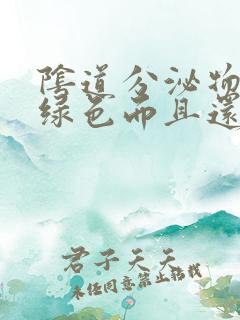 陰道分泌物
綠色而且還
君子天天
未经同意禁止转载